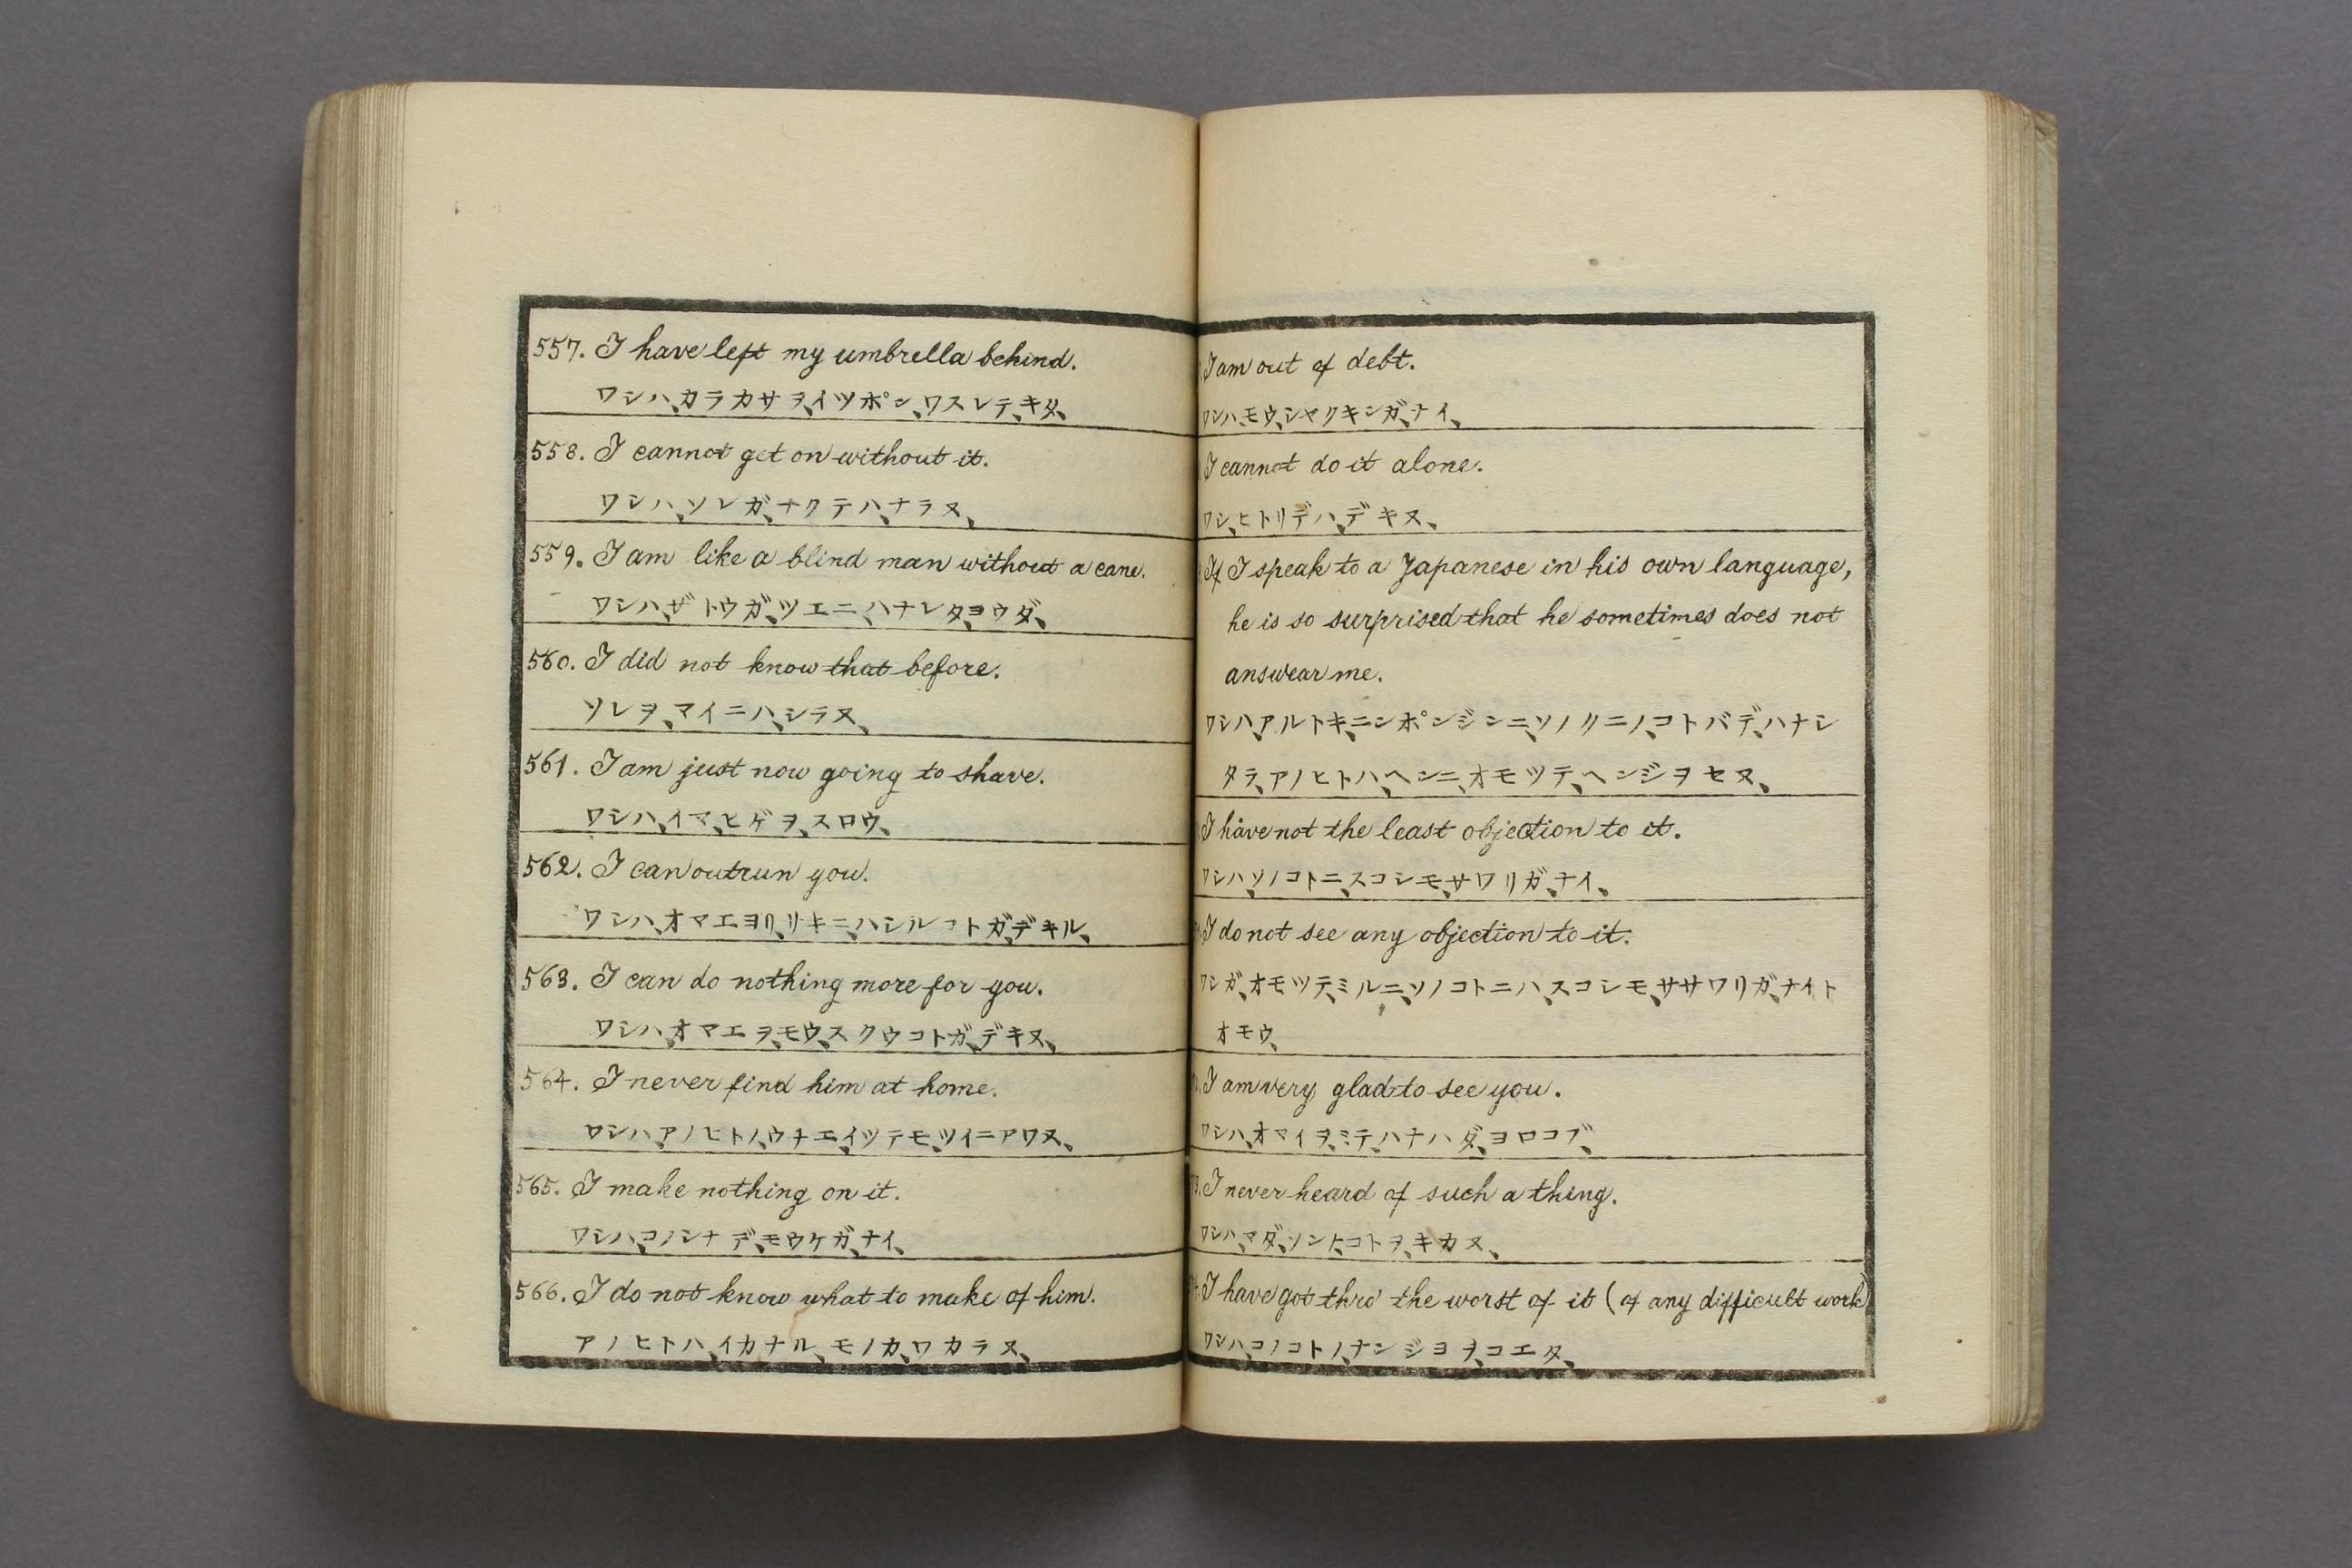 557. I have left my umbrella behind.
ワシハ、カラカサヲ、イツポン、ワスレテ、キタ、
558. I cannot get on without it.
ワシハ、ソレガ、ナクテハ、ナラヌ、
559. I am like a blind man without a cane.
ワシハ、ザトウガ、ツエニ、ハナレタ、ヨウダ、
560. I did not know that before.
ソレヲ、マイニハ、シラヌ、
561. I am just now going to shave.
ワシハ、イマ、ヒゲヲ、スロウ、
562. I can outrun you.
ワシハ、オマエヨリ、リキニ、ハシルコトガ、デキル、
563. I can do nothing more for you.
ワシハ、オマエヲ、モウ、スクウコトガ、デキヌ、
564. I never find him at home.
ワシハ、アノヒトノ、ウチエ、イツテモ、ツイニアワヌ、
565. I make nothing on it.
ワシハ、コノシナデ、モウケガ、ナイ、
566. I do not know what to make of him.
アノヒトハ、イカナル、モノカ、ワカラヌ、
I am out of debt.
ワシハ、モウ、シヤクキンガ、ナイ、
I cannot do it alone.
ワシ、ヒトリデハ、デキヌ、
If I speak to a Japanese in his own language,
he is so surprised that he sometimes does not
answear me.
ワシハ、アルトキ、ニンポンジンニ、ソノクニノ、コトバデ、ハナシ
タラ、アノヒトハ、ヘンニ、オモツテ、ヘンジヲセヌ、
I have not the least objection to it.
ワシハ、ソノコトニ、スコシモ、サワリガ、ナイ、
I do not see any objection to it.
ワシガ、オモツテ、ミルニ、ソノコトニハ、スコシモ、ササワリガ、ナイト
オモウ、
I am very glad to see you.
ワシハ、オマイヲ、ミテ、ハナハダ、ヨロコブ、
I never heard of such a thing.
ワシハ、マダ、ソンナ、コトヲ、キカヌ、
I have got thro' the worst of it (of any difficult work)
ワシハ、コノコトノ、ナンジヨヲ、コエタ、